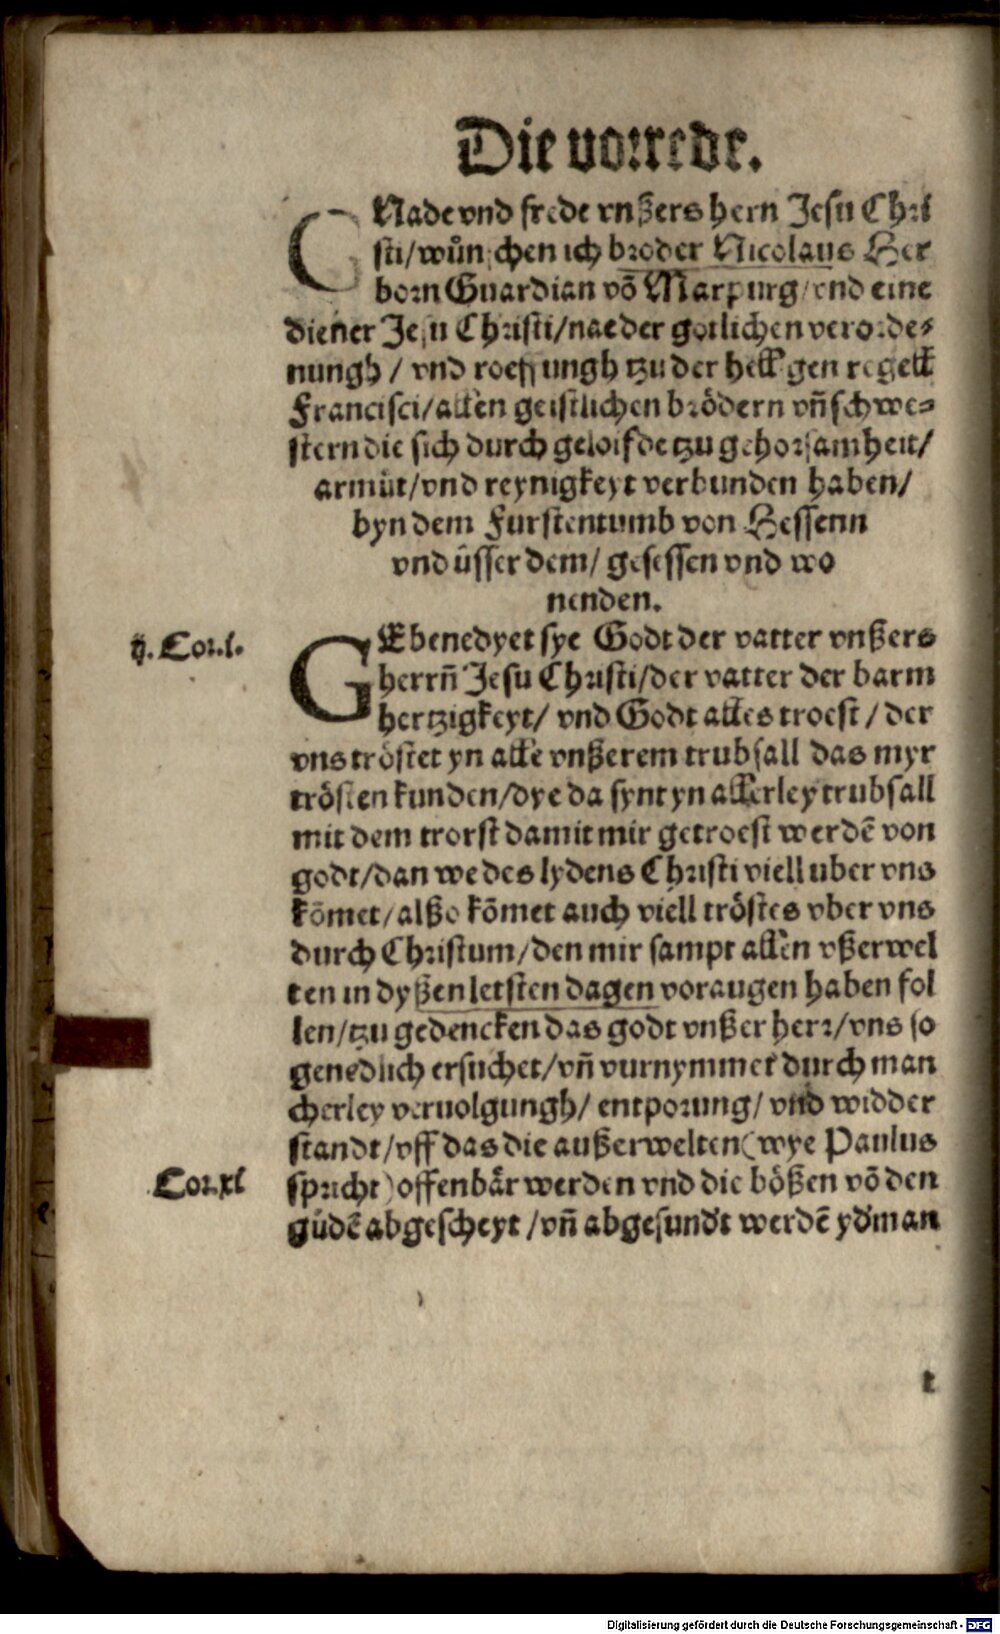 Die vorrede.
GNade vnd frede vnßers hern Jesu Chri
sti/wünschen ich broder Nicolaus Her
born Guardian võ Marpurg/vnd eine
diener Jesu Christi/nae der gotlichen verorde-
nungh / vnd roeffungh tzu der helligen regell
Francisci/allen geistlichen brödern vñ schwe-
stern die sich durch geloifde tzu gehorsamheit/
armüt/vnd reynigkeyt verbunden haben/
byn dem Furstentumb von Hessenn
vnd üsser dem/ gesessen vnd wo
nenden.
ij. Cor. i.
GEbenedyet sye Godt der vatter vnßers
herrñ Jesu Christi/der vatter der barm
hertzigkeyt/ vnd Godt alles troest / der
vns tröstet yn alle vnßerem trubsall das myr
trösten kunden/dye da synt yn allerley trubsall
mit dem trorst damit mir getroest werdē von
godt/dan we des lydens Christi viell uber vns
kõmet/alßo kõmet auch viell tröstes vber vns
durch Christum/den mir sampt allen vßerwel
ten in dyßen letsten dagen voraugen haben sol
len/tzu gedencken das godt vnßer herr/vns so
genedlich ersuchet/vñ vurnymmet durch man
cherley veruolgungh/ entporung/ vnd widder
standt/vff das die außerwelten(wye Paulus
Cor. xi
spricht)offenbär werden vnd die bößen võ den
güdē abgescheyt /vñ abgesundt werdē ydman
t
Digitalisierung gefördert durch die Deutsche Forschungsgemeinschaft - DFG